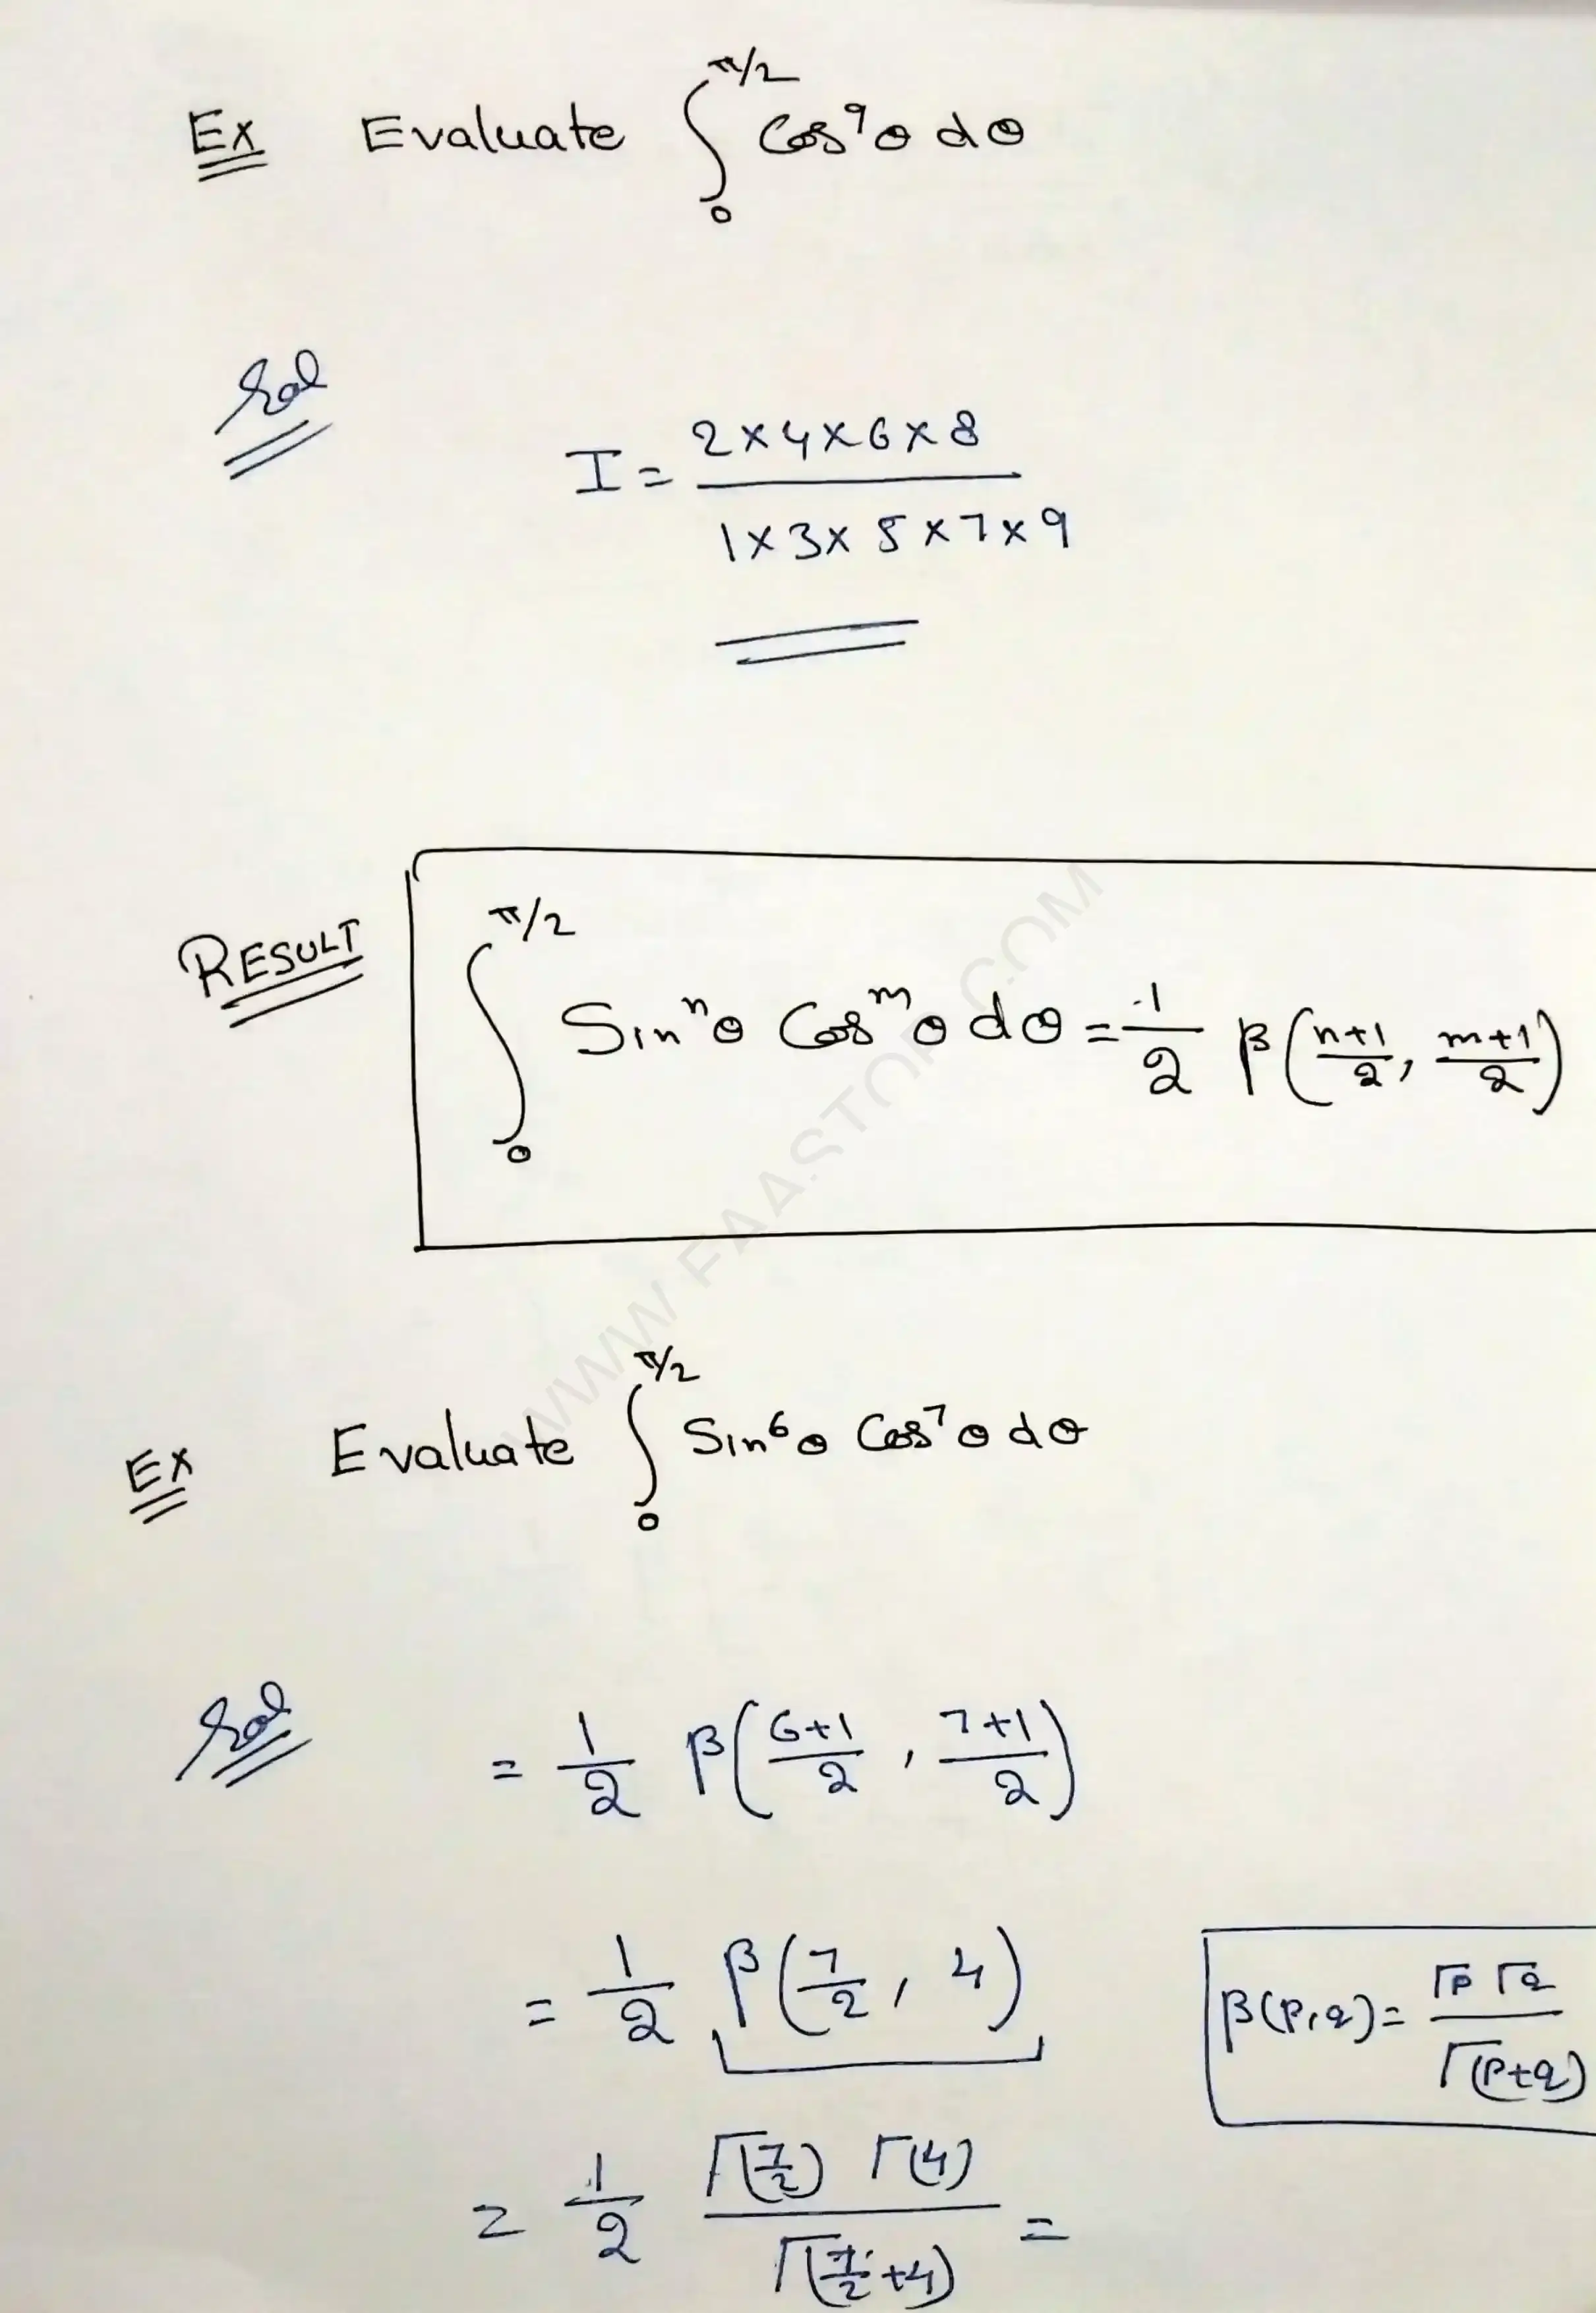 Ex Evaluate ∫₀^π/2 Cos⁹θ dθ
Sol
I = 2×4×6×8 / 1×3×5×7×9
RESULT ∫₀^π/2 Sinⁿθ Cosᵐθ dθ = 1/2 β(n+1/2, m+1/2)
WWW.FAASTOP.COM
Ex Evaluate ∫₀^π/2 Sin⁶θ Cos⁷θ dθ
Sol = 1/2 β(6+1/2, 7+1/2)
= 1/2 β(7/2, 4)
β(p,q) = Γp Γq / Γ(p+q)
= 1/2 Γ(7/2) Γ(4) / Γ(7/2+4) =